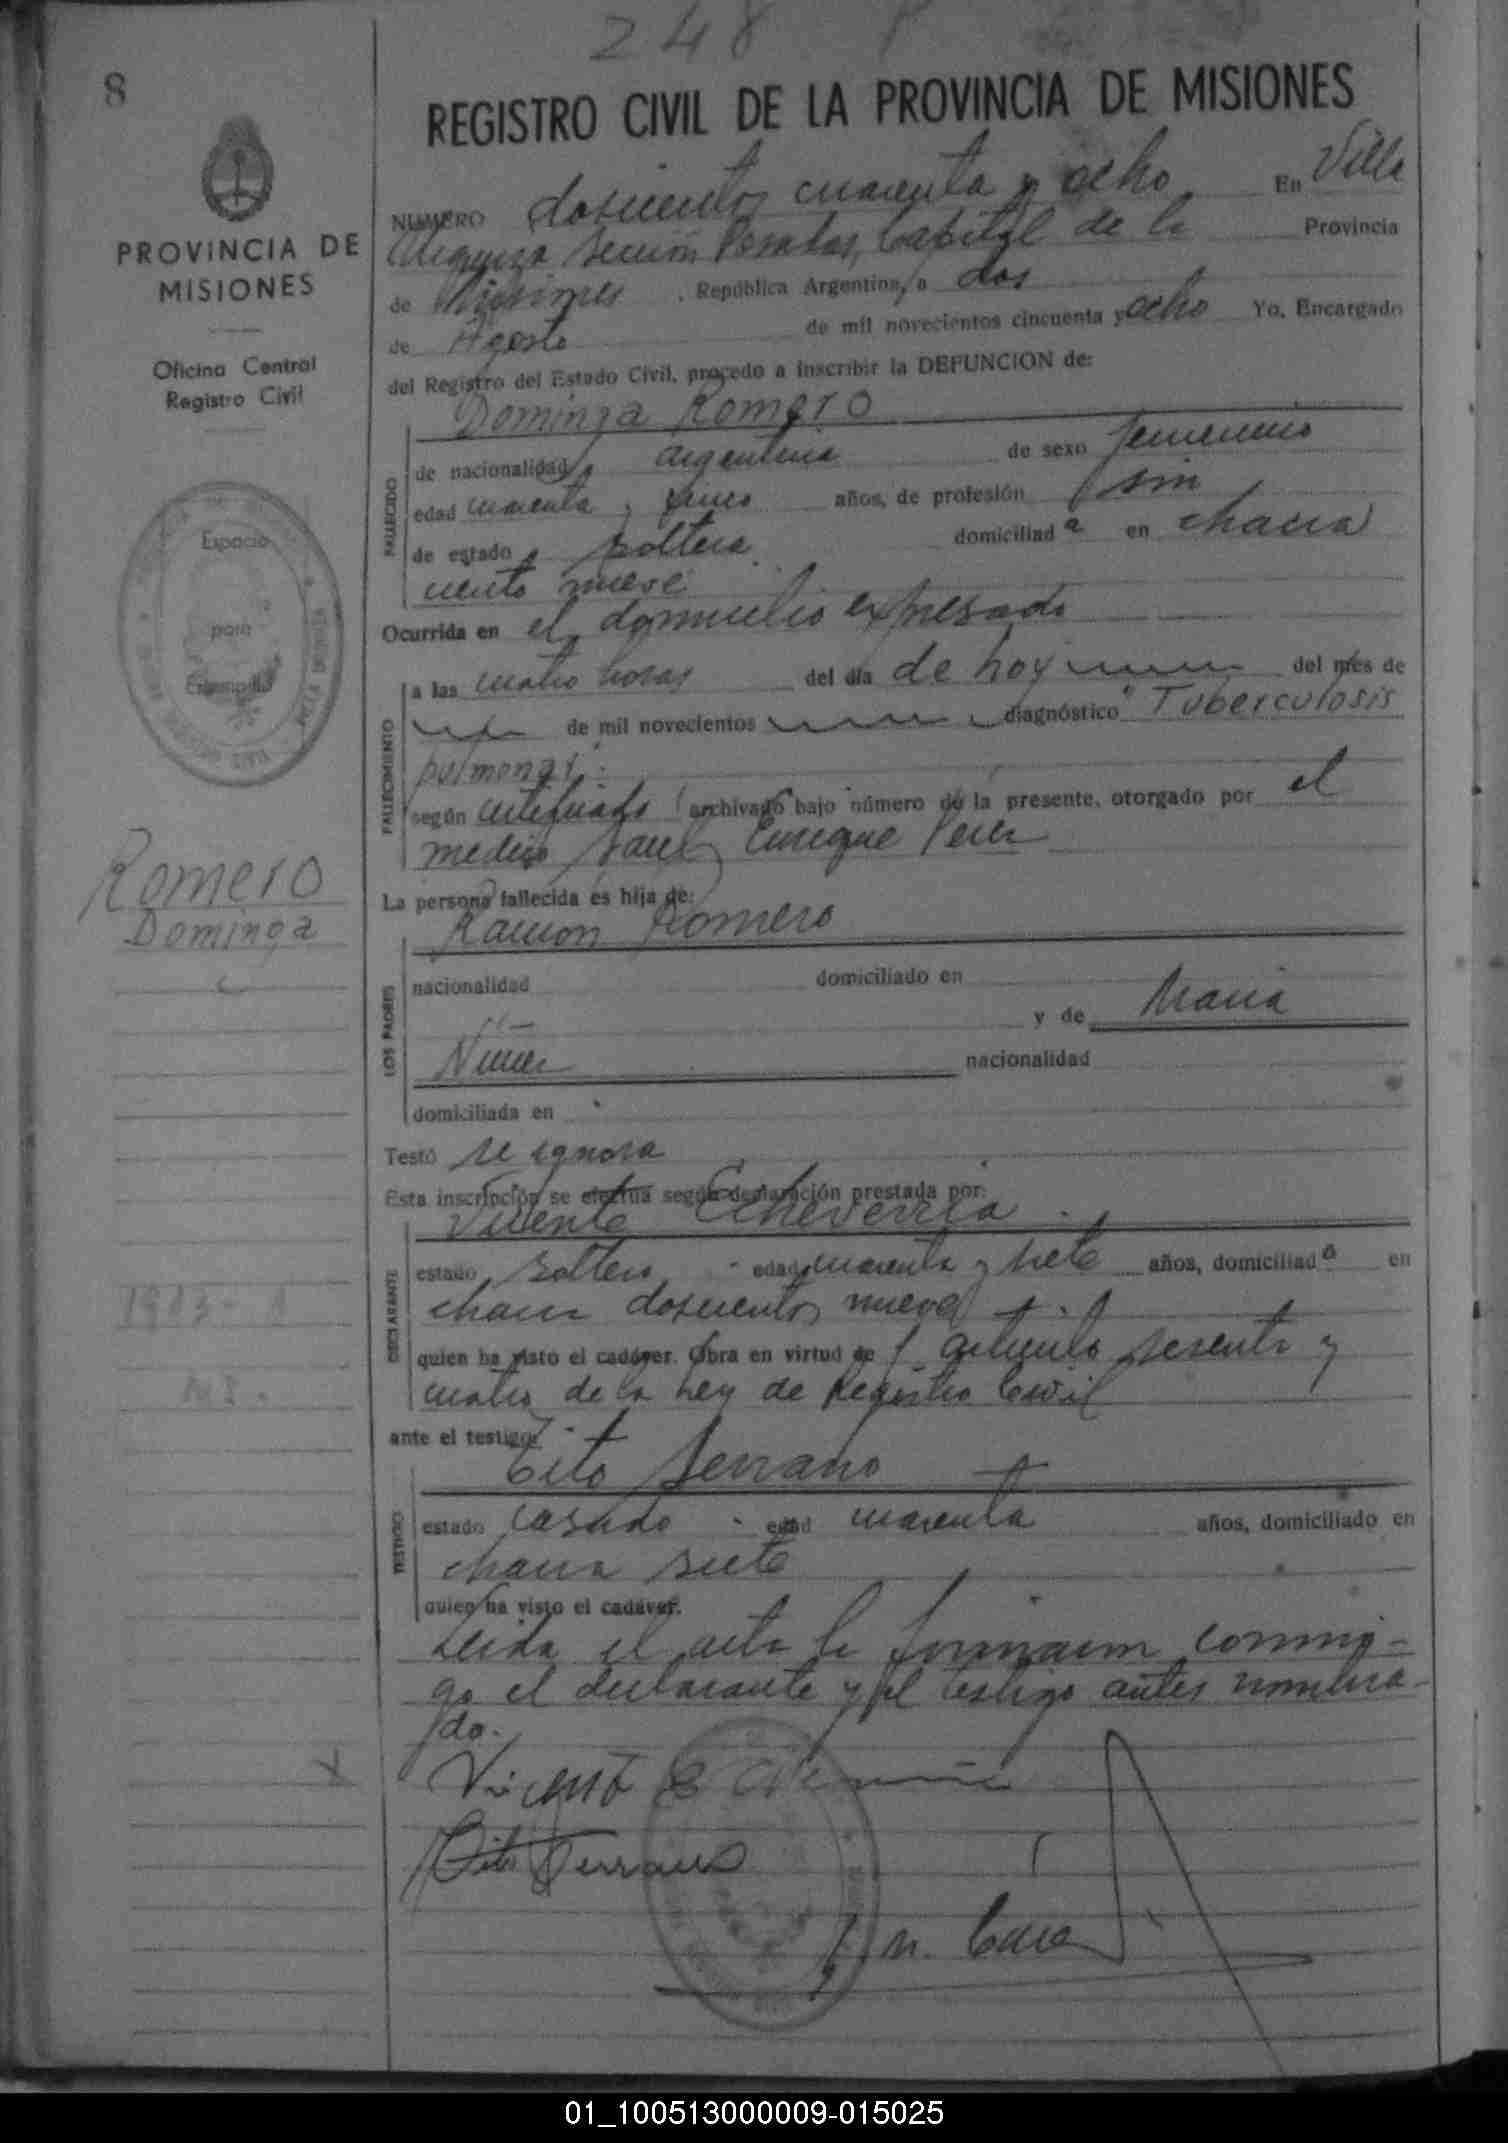 248
8
REGISTRO CIVIL DE LA PROVINCIA DE MISIONES
PROVINCIA DE
MISIONES
Oficina Central
Registro Civil
Espacio
para
Estampilla
Romero
Dominga
1913-
NUMERO doscientos cuarenta y ocho En Villa
Urquiza sección Posadas, Capital de la Provincia
de Misiones, República Argentina, a dos
de Agosto de mil novecientos cincuenta y ocho Yo, Encargado
del Registro del Estado Civil, procedo a inscribir la DEFUNCION de:
Dominga Romero
FALLECIDO
de nacionalidad argentina de sexo femenino
edad cuarenta y cinco años, de profesión sin
de estado soltera domiciliad a en chacra
ciento nueve
Ocurrida en el domicilio expresado
FALLECIMIENTO
a las cuatro horas del día de hoy del mes de
de mil novecientos diagnóstico Tuberculosis
pulmonar.
según certificado archivado bajo número de la presente, otorgado por el
medico Saul Enrique Perez
La persona fallecida es hija de:
Ramon Romero
LOS PADRES
nacionalidad domiciliado en
y de Maria
nacionalidad
domiciliada en
Testó se ignora
Esta inscripción se efectua según declaración prestada por:
Vicente Echeverria
DECLARANTE
estado soltero edad cuarenta y siete años, domiciliad o en
chacra doscientos nueve
quien ha visto el cadáver. Obra en virtud de articulo sesenta y
cuatro de la Ley de Registro Civil
ante el testigo:
Tito Serrano
TESTIGO
estado casado edad cuarenta años, domiciliado en
chacra siete
quien ha visto el cadáver.
Leida el acta la firmaron conmi-
go el declarante y el testigo antes nombra-
do.
Vicente Echeverria
Tito Serrano
01_100513000009-015025